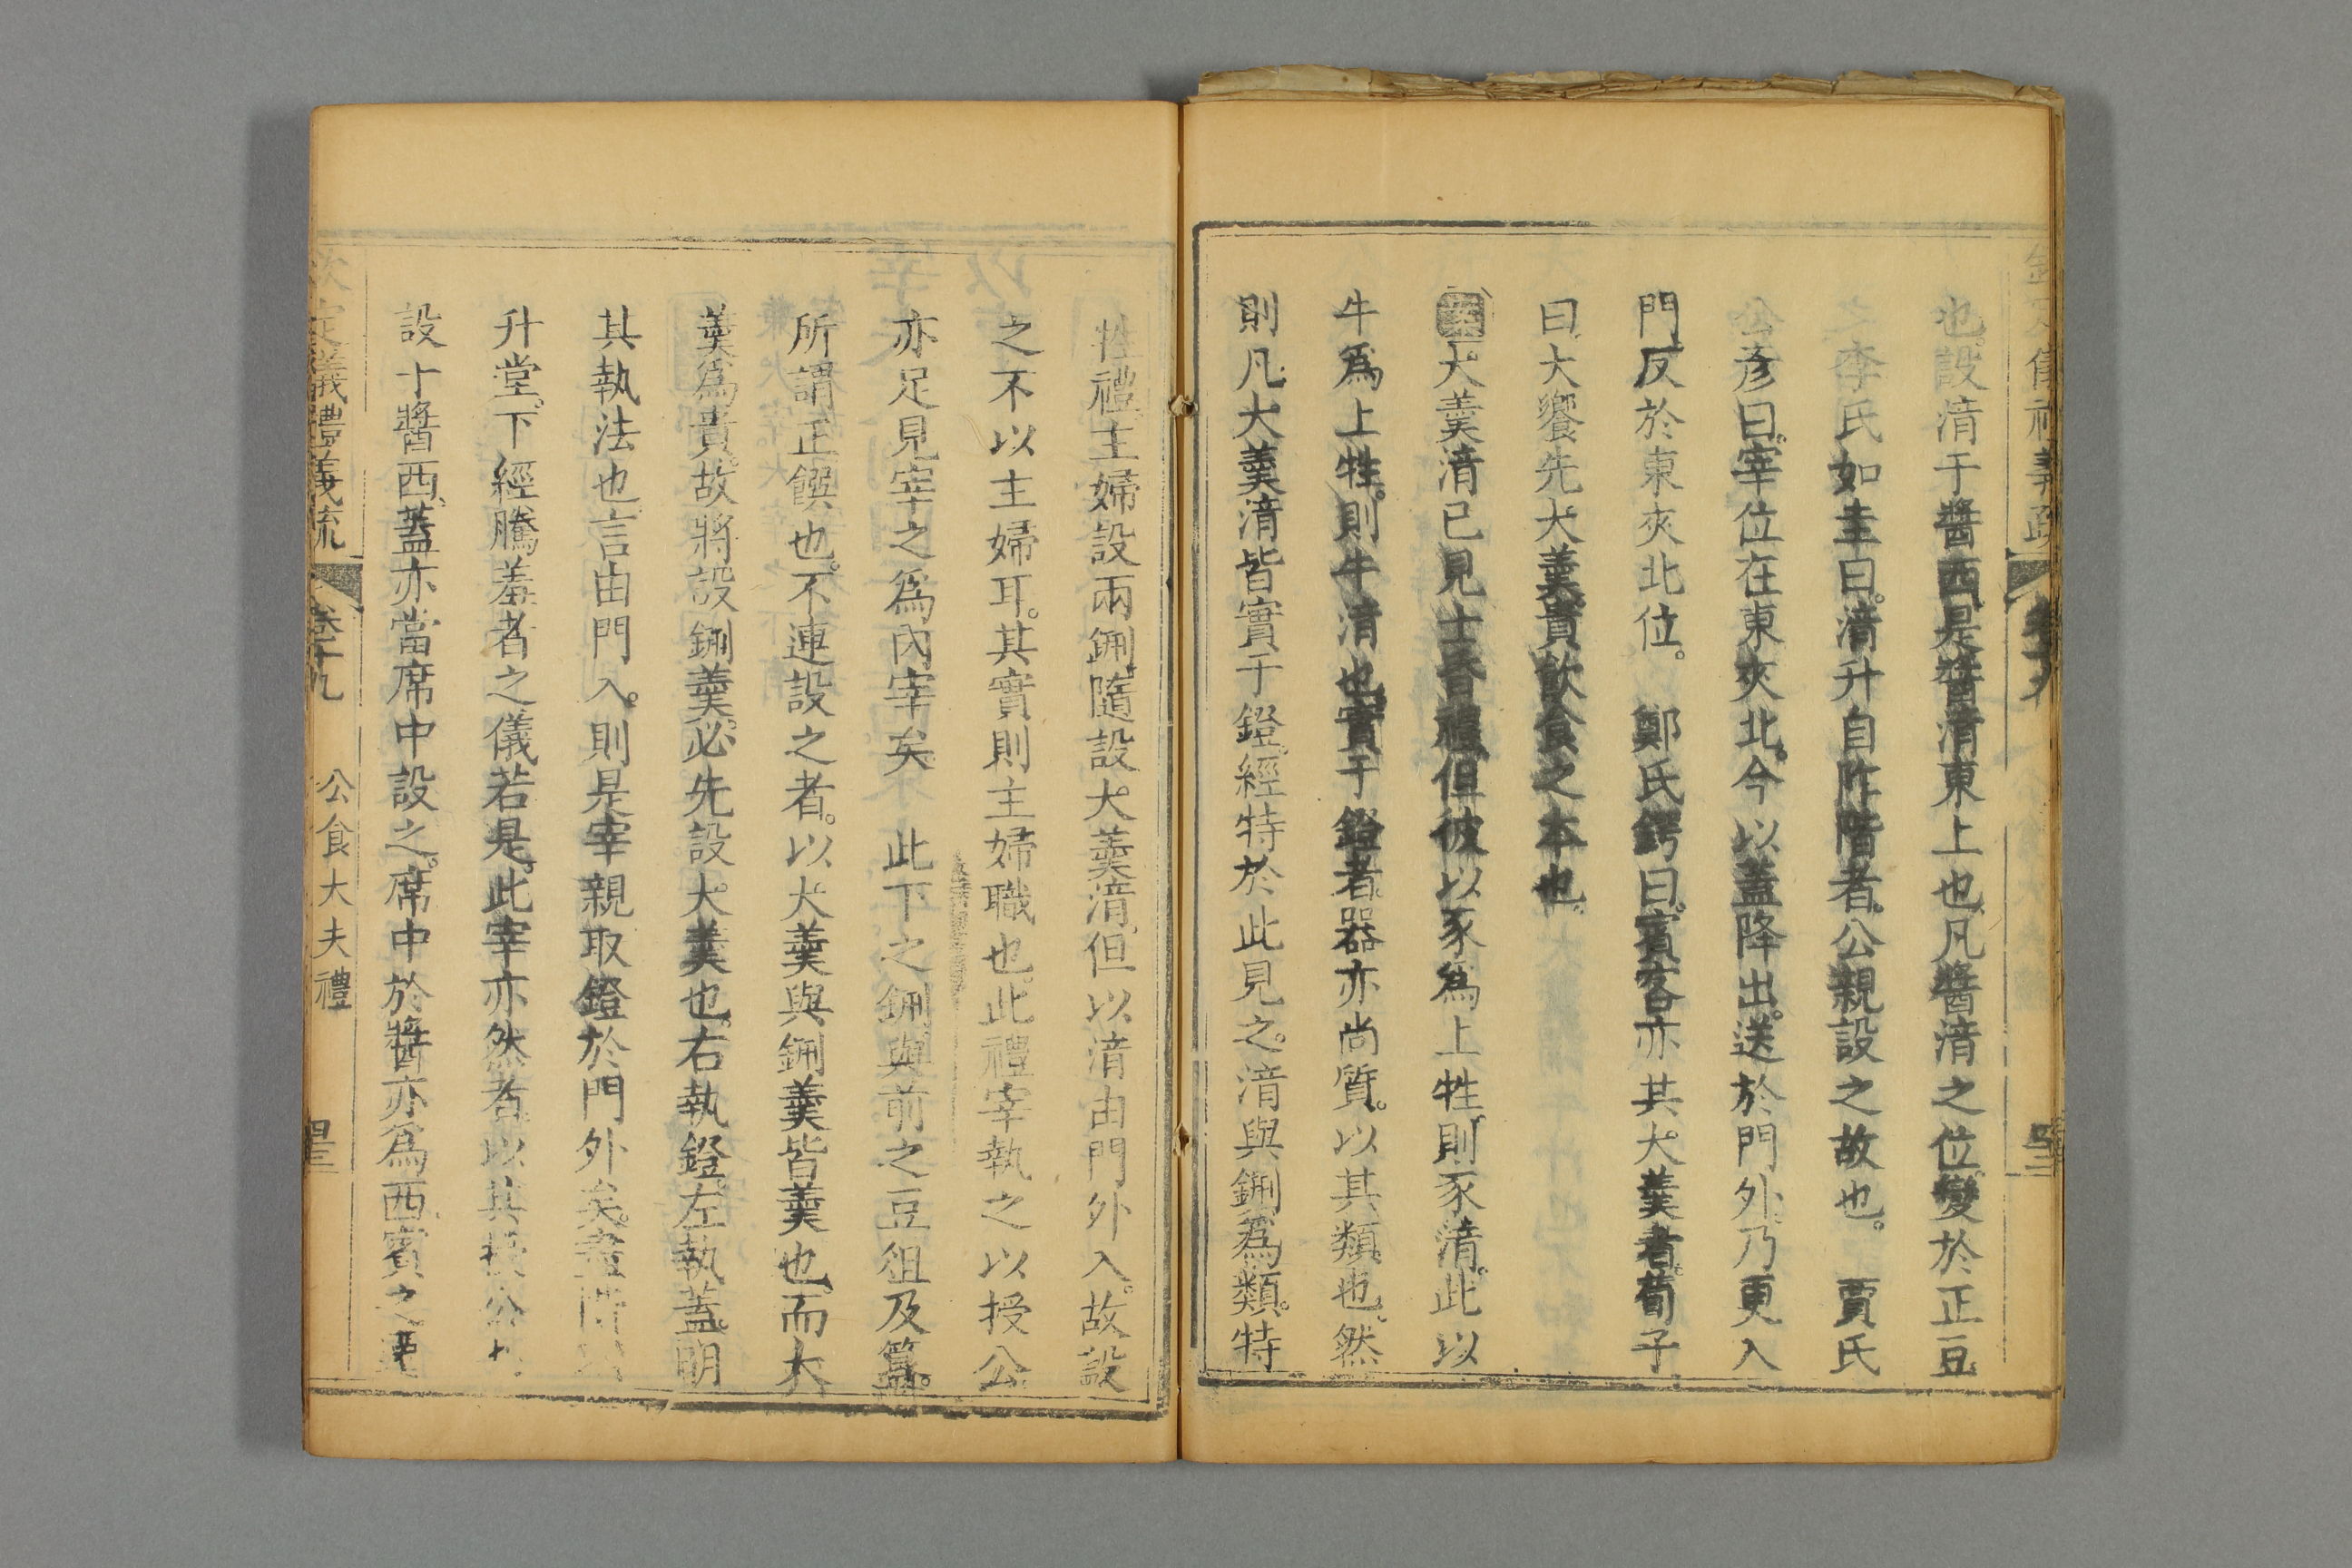 也。設湆于醬西。是醬湆東上也。凡醬湆之位。變於正豆
李氏如圭曰。湆升自阼階者。公親設之故也。 賈氏
公彥曰。宰位在東夾北。今以蓋降出。送於門外。乃更入
門。反於東夾北位。 鄭氏鍔曰。賓客亦共大羹者。荀子
曰。大饗先大羹。貴飲食之本也。
大羹湆已見士昏禮。但彼以豕爲上牲。則豕湆。此以
牛爲上牲。則牛湆也。實于鐙者。器亦尚質。以其類也。然
則凡大羹湆皆實于鐙。經特於此見之。湆與鉶爲類。特
牲禮。主婦設兩鉶。隨設大羹湆。但以湆由門外入。故設
之不以主婦耳。其實則主婦職也。此禮宰執之以授公
亦足見宰之爲內宰矣 此下之鉶與前之豆俎及簋。
所謂正饌也。不連設之者。以大羹與鉶羹皆羹也。而大
羹爲貴。故將設鉶羹。必先設大羹也。右執鐙。左執蓋。明
其執法也。言由門入。則是宰親取鐙於門外矣。盡階
升堂。下經騰羞者之儀若是。此宰亦然者。以其授公也
設于醬西。蓋亦當席中設之。席中於醬亦爲西。賓之
欽定儀禮義疏 卷十九 公食大夫禮